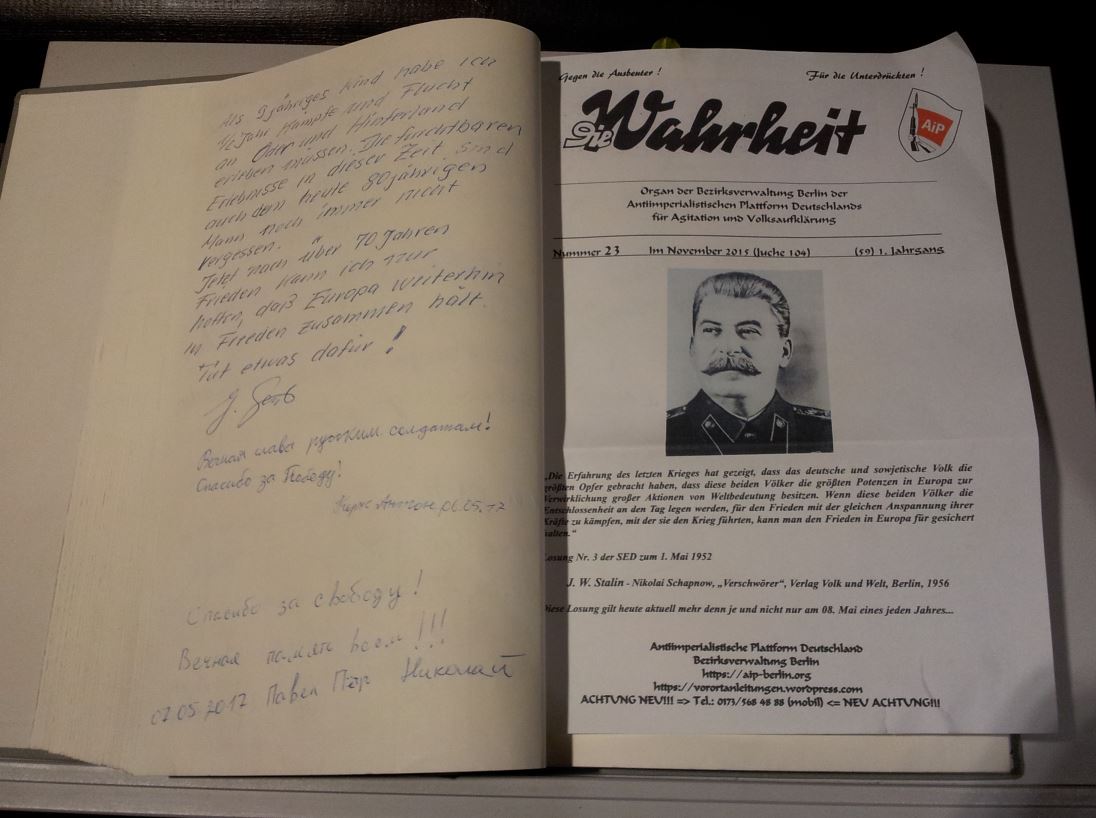 Als 9jähriges Kind habe ich
1/2 Jahr Kämpfe und Flucht
an Oder und Hinterland
erleben müssen. Die furchtbaren
Erlebnisse in dieser Zeit sind
auch dem heute 80jährigen
Mann noch immer nicht
vergessen.
Jetzt nach über 70 Jahren
Frieden kann ich nur
hoffen, daß Europa weiterhin
in Frieden zusammen hält.
Tut etwas dafür!
Вечная слава русским солдатам!
Спасибо за Победу!
Антон 06.05.17
Спасибо за свободу!
Вечная память всем!!!
07.05.2017 Павел Николай
Gegen die Ausbeuter!
Für die Unterdrückten!
Die Wahrheit
AiP
Organ der Bezirksverwaltung Berlin der
Antiimperialistischen Plattform Deutschlands
für Agitation und Volksaufklärung
Nummer 23 Im November 2015 (Juche 104) (59) 1. Jahrgang
„Die Erfahrung des letzten Krieges hat gezeigt, dass das deutsche und sowjetische Volk die
größten Opfer gebracht haben, dass diese beiden Völker die größten Potenzen in Europa zur
Verwirklichung großer Aktionen von Weltbedeutung besitzen. Wenn diese beiden Völker die
Entschlossenheit an den Tag legen werden, für den Frieden mit der gleichen Anspannung ihrer
Kräfte zu kämpfen, mit der sie den Krieg führten, kann man den Frieden in Europa für gesichert
halten.“
Losung Nr. 3 der SED zum 1. Mai 1952
J. W. Stalin - Nikolai Schapnow, „Verschwörer“, Verlag Volk und Welt, Berlin, 1956
Diese Losung gilt heute aktuell mehr denn je und nicht nur am 08. Mai eines jeden Jahres...
Antiimperialistische Plattform Deutschland
Bezirksverwaltung Berlin
https://aip-berlin.org
https://vorortanleitungen.wordpress.com
ACHTUNG NEU!!! => Tel.: 0173/568 48 88 (mobil) <= NEU ACHTUNG!!!